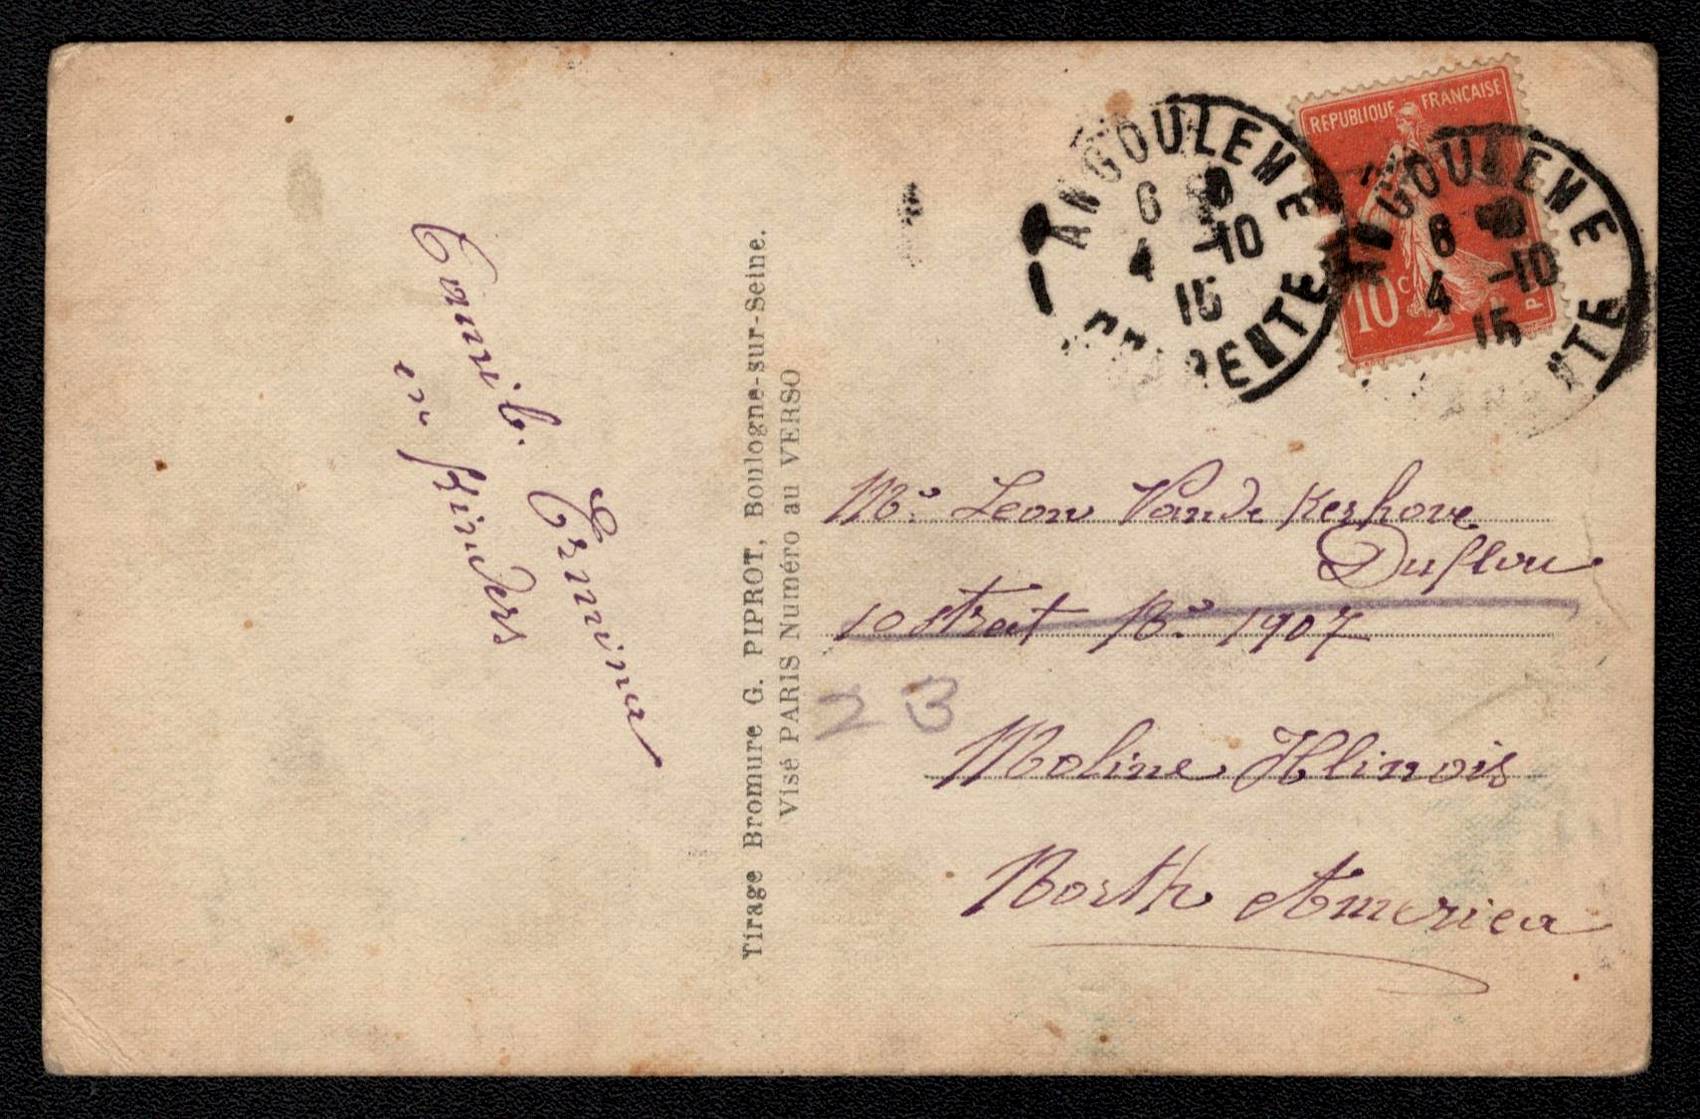 Camib. Ermina
en Kinders
Tirage Bromure G. PIPROT, Boulogne-sur-Seine.
Visé PARIS Numéro au VERSO
REPUBLIQUE FRANÇAISE
10c
ANGOULEME
6
4 -10
15
CHARENTE
ANGOULEME
6
4 -10
15
CHARENTE
Mr. Leon Vande Kerhove
Duflou
10 streat No. 1907
23
Moline. Illinois
North America